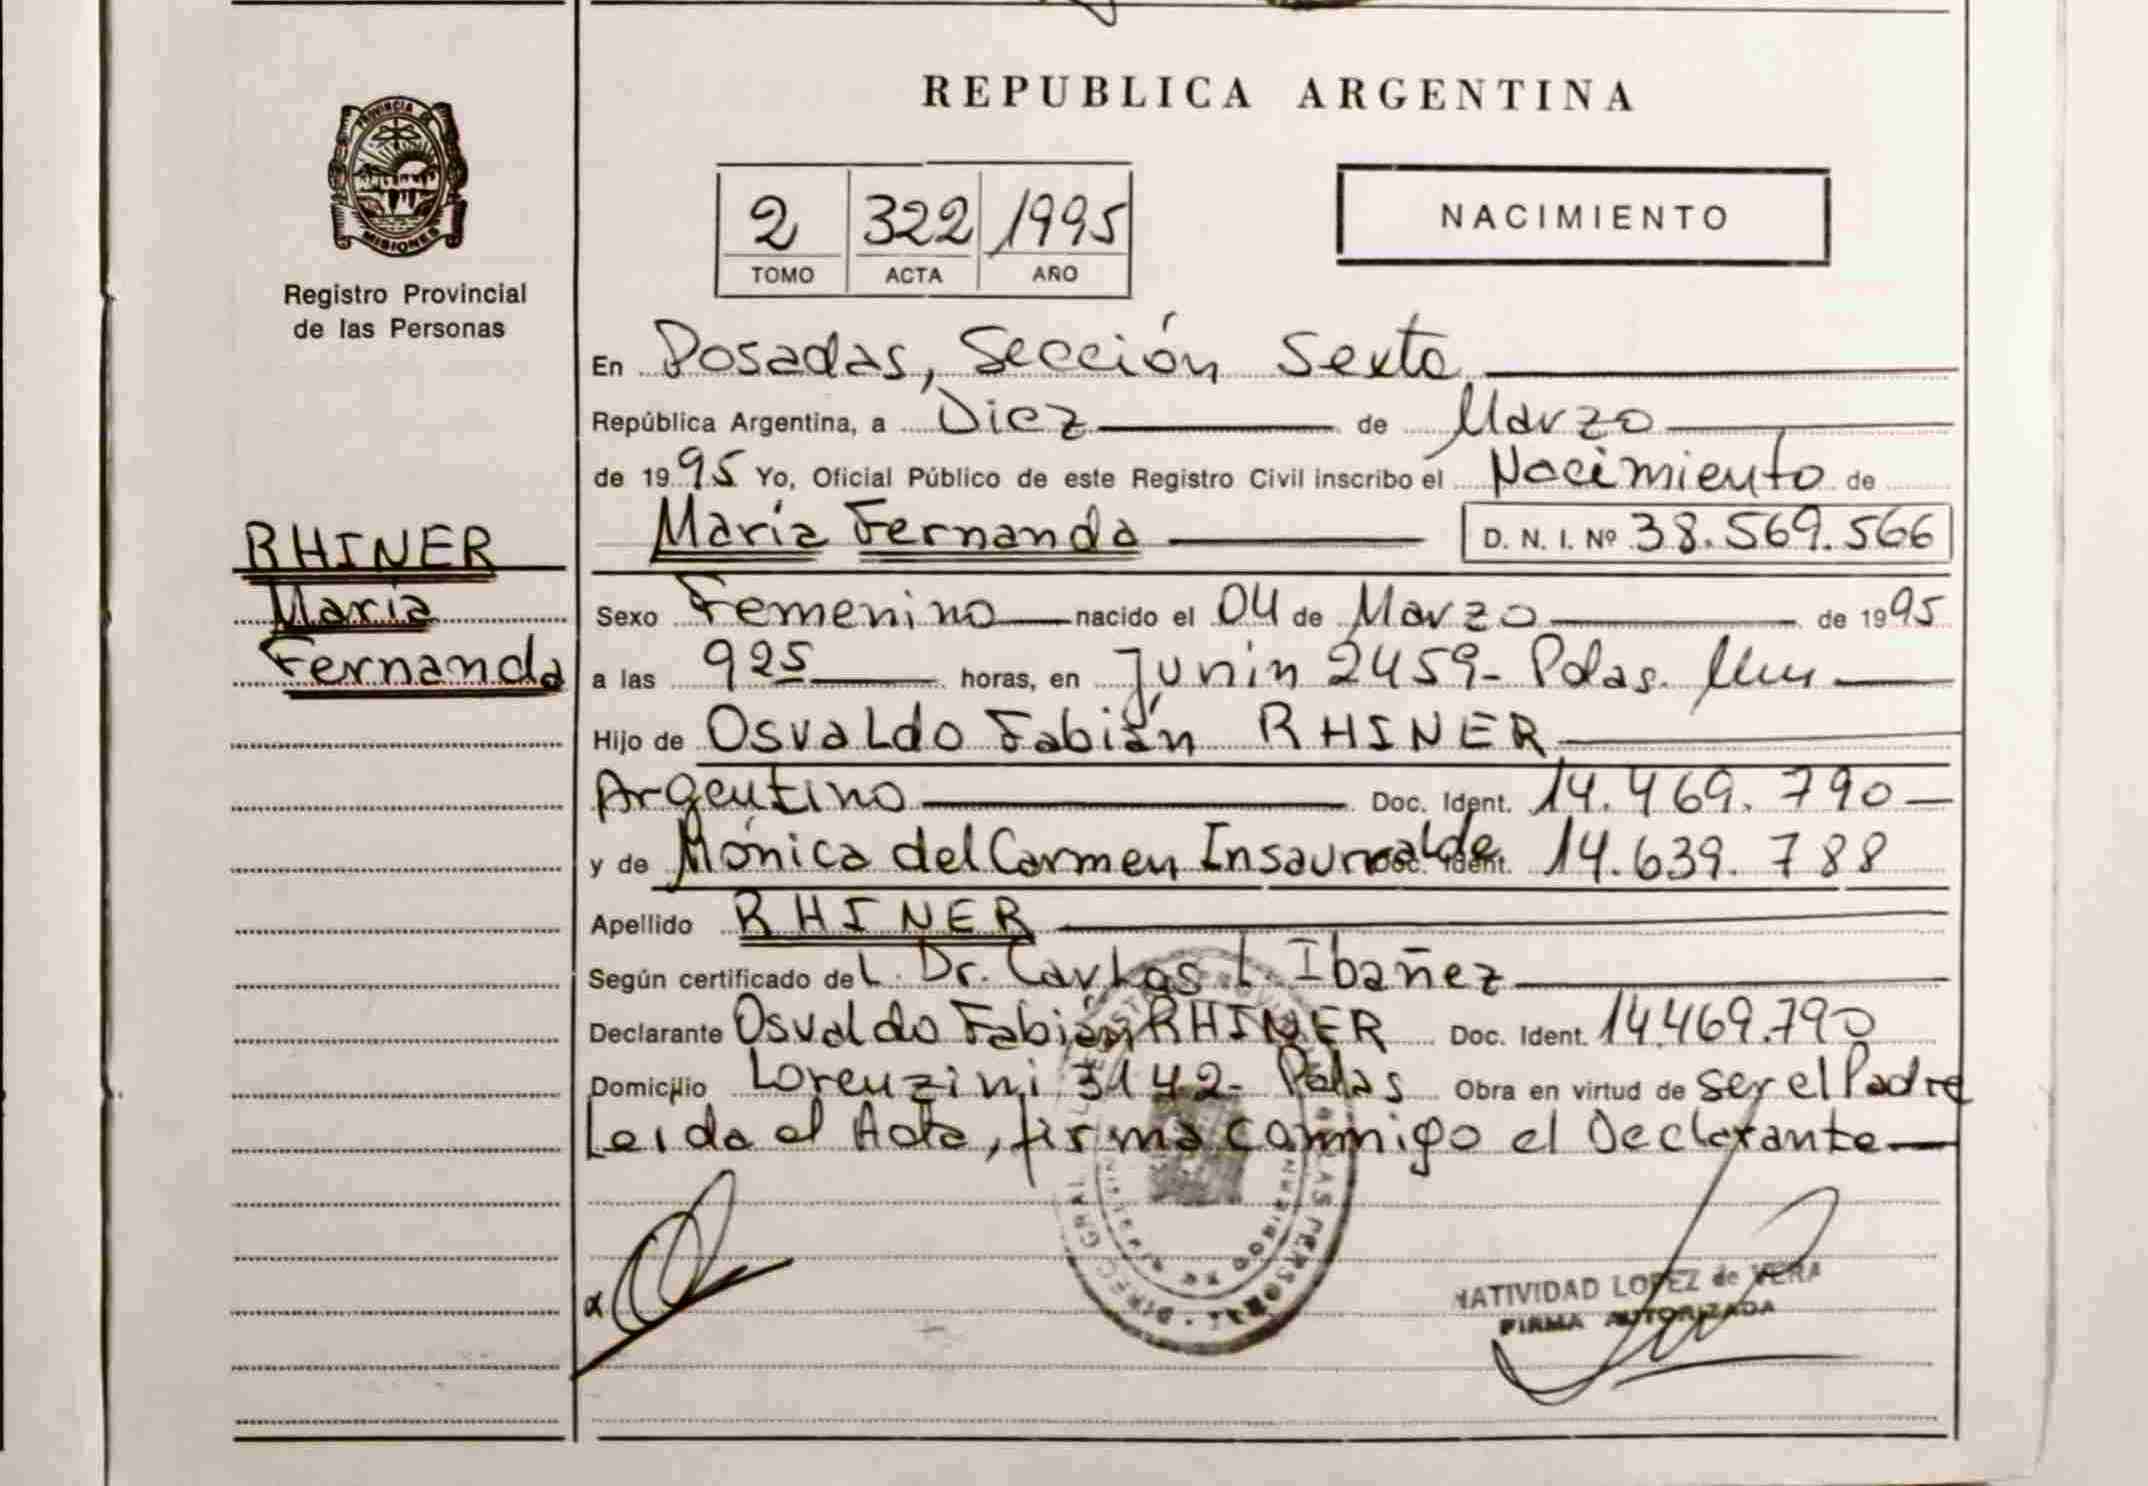 REPUBLICA ARGENTINA
PROVINCIA DE
MISIONES
Registro Provincial
de las Personas
2 322 1995
TOMO ACTA AÑO
NACIMIENTO
En Posadas, Sección Sexta
República Argentina, a Diez de Marzo
de 1995 Yo, Oficial Público de este Registro Civil inscribo el Nacimiento de
María Fernanda D. N. I. Nº 38.569.566
RHINER
María
Fernanda
Sexo Femenino nacido el 04 de Marzo de 1995
a las 9 25 horas, en Junin 2459- Pdas.
Hijo de Osvaldo Fabián RHINER
Argentino Doc. Ident. 14.469.790
y de Mónica del Carmen Insaurralde Doc. Ident. 14.639.788
Apellido RHINER
Según certificado del Dr. Carlos I. Ibañez
Declarante Osvaldo Fabián RHINER Doc. Ident. 14.469.790
Domicilio Lorenzini 3142- Pdas Obra en virtud de ser el Padre
Leida el Acta, firma conmigo el Declarante
NATIVIDAD LOPEZ de VERA
FIRMA AUTORIZADA